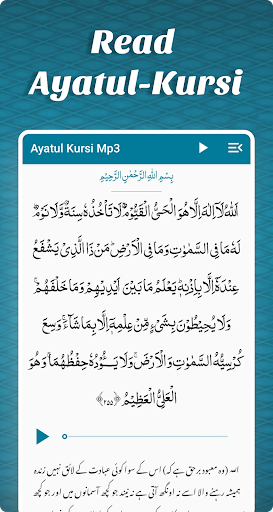 Read
Ayatul-Kursi
Ayatul Kursi Mp3
بِسْمِ اللّٰهِ الرَّحْمٰنِ الرَّحِيْمِ
اَللّٰهُ لَاۤ اِلٰهَ اِلَّا هُوَ الْحَیُّ الْقَیُّوْمُ ۚ لَا تَاْخُذُهٗ سِنَةٌ وَّلَا نَوْمٌ ؕ
لَهٗ مَا فِی السَّمٰوٰتِ وَمَا فِی الْاَرْضِ ؕ مَنْ ذَا الَّذِیْ یَشْفَعُ
عِنْدَهٗۤ اِلَّا بِاِذْنِهٖ ؕ یَعْلَمُ مَا بَیْنَ اَیْدِیْهِمْ وَمَا خَلْفَهُمْ ۚ
وَلَا یُحِیْطُوْنَ بِشَیْءٍ مِّنْ عِلْمِهٖۤ اِلَّا بِمَا شَآءَ ۚ وَسِعَ
كُرْسِیُّهُ السَّمٰوٰتِ وَالْاَرْضَ ۚ وَلَا یَـُٔوْدُهٗ حِفْظُهُمَا ۚ وَهُوَ
الْعَلِیُّ الْعَظِیْمُ ﴿۲۵۵﴾
اللہ (وہ معبود برحق ہے کہ) اس کے سوا کوئی عبادت کے لائق نہیں زندہ
ہمیشہ رہنے والا اسے نہ اونگھ آتی ہے نہ نیند جو کچھ آسمانوں میں اور جو کچھ